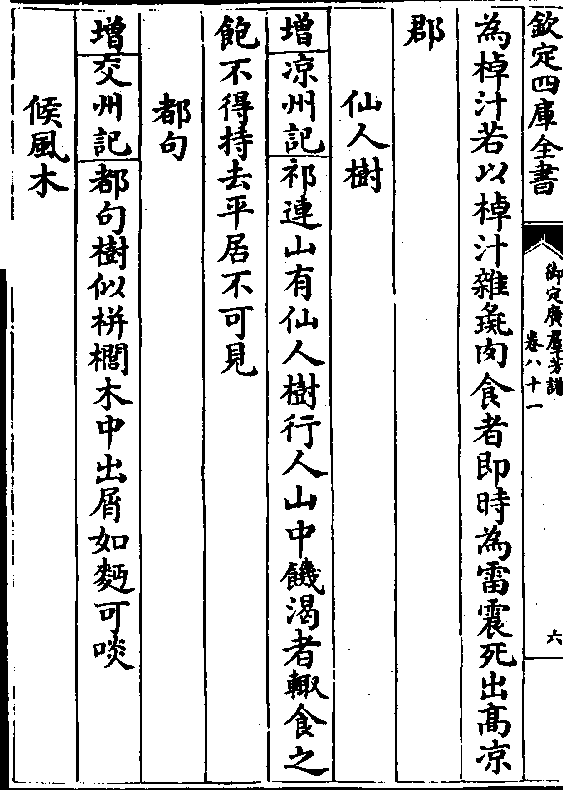 欽定四庫全書
御定廣羣芳譜
卷八十一
六
為棹汁若以棹汁雜彘肉食者即時為雷震死出髙凉
郡
仙人樹
增凉州記祁連山有仙人樹行人山中饑渴者輙食之
飽不得持去平居不可見
都句
增交州記都句樹似栟櫚木中出屑如麫可啖
候風木